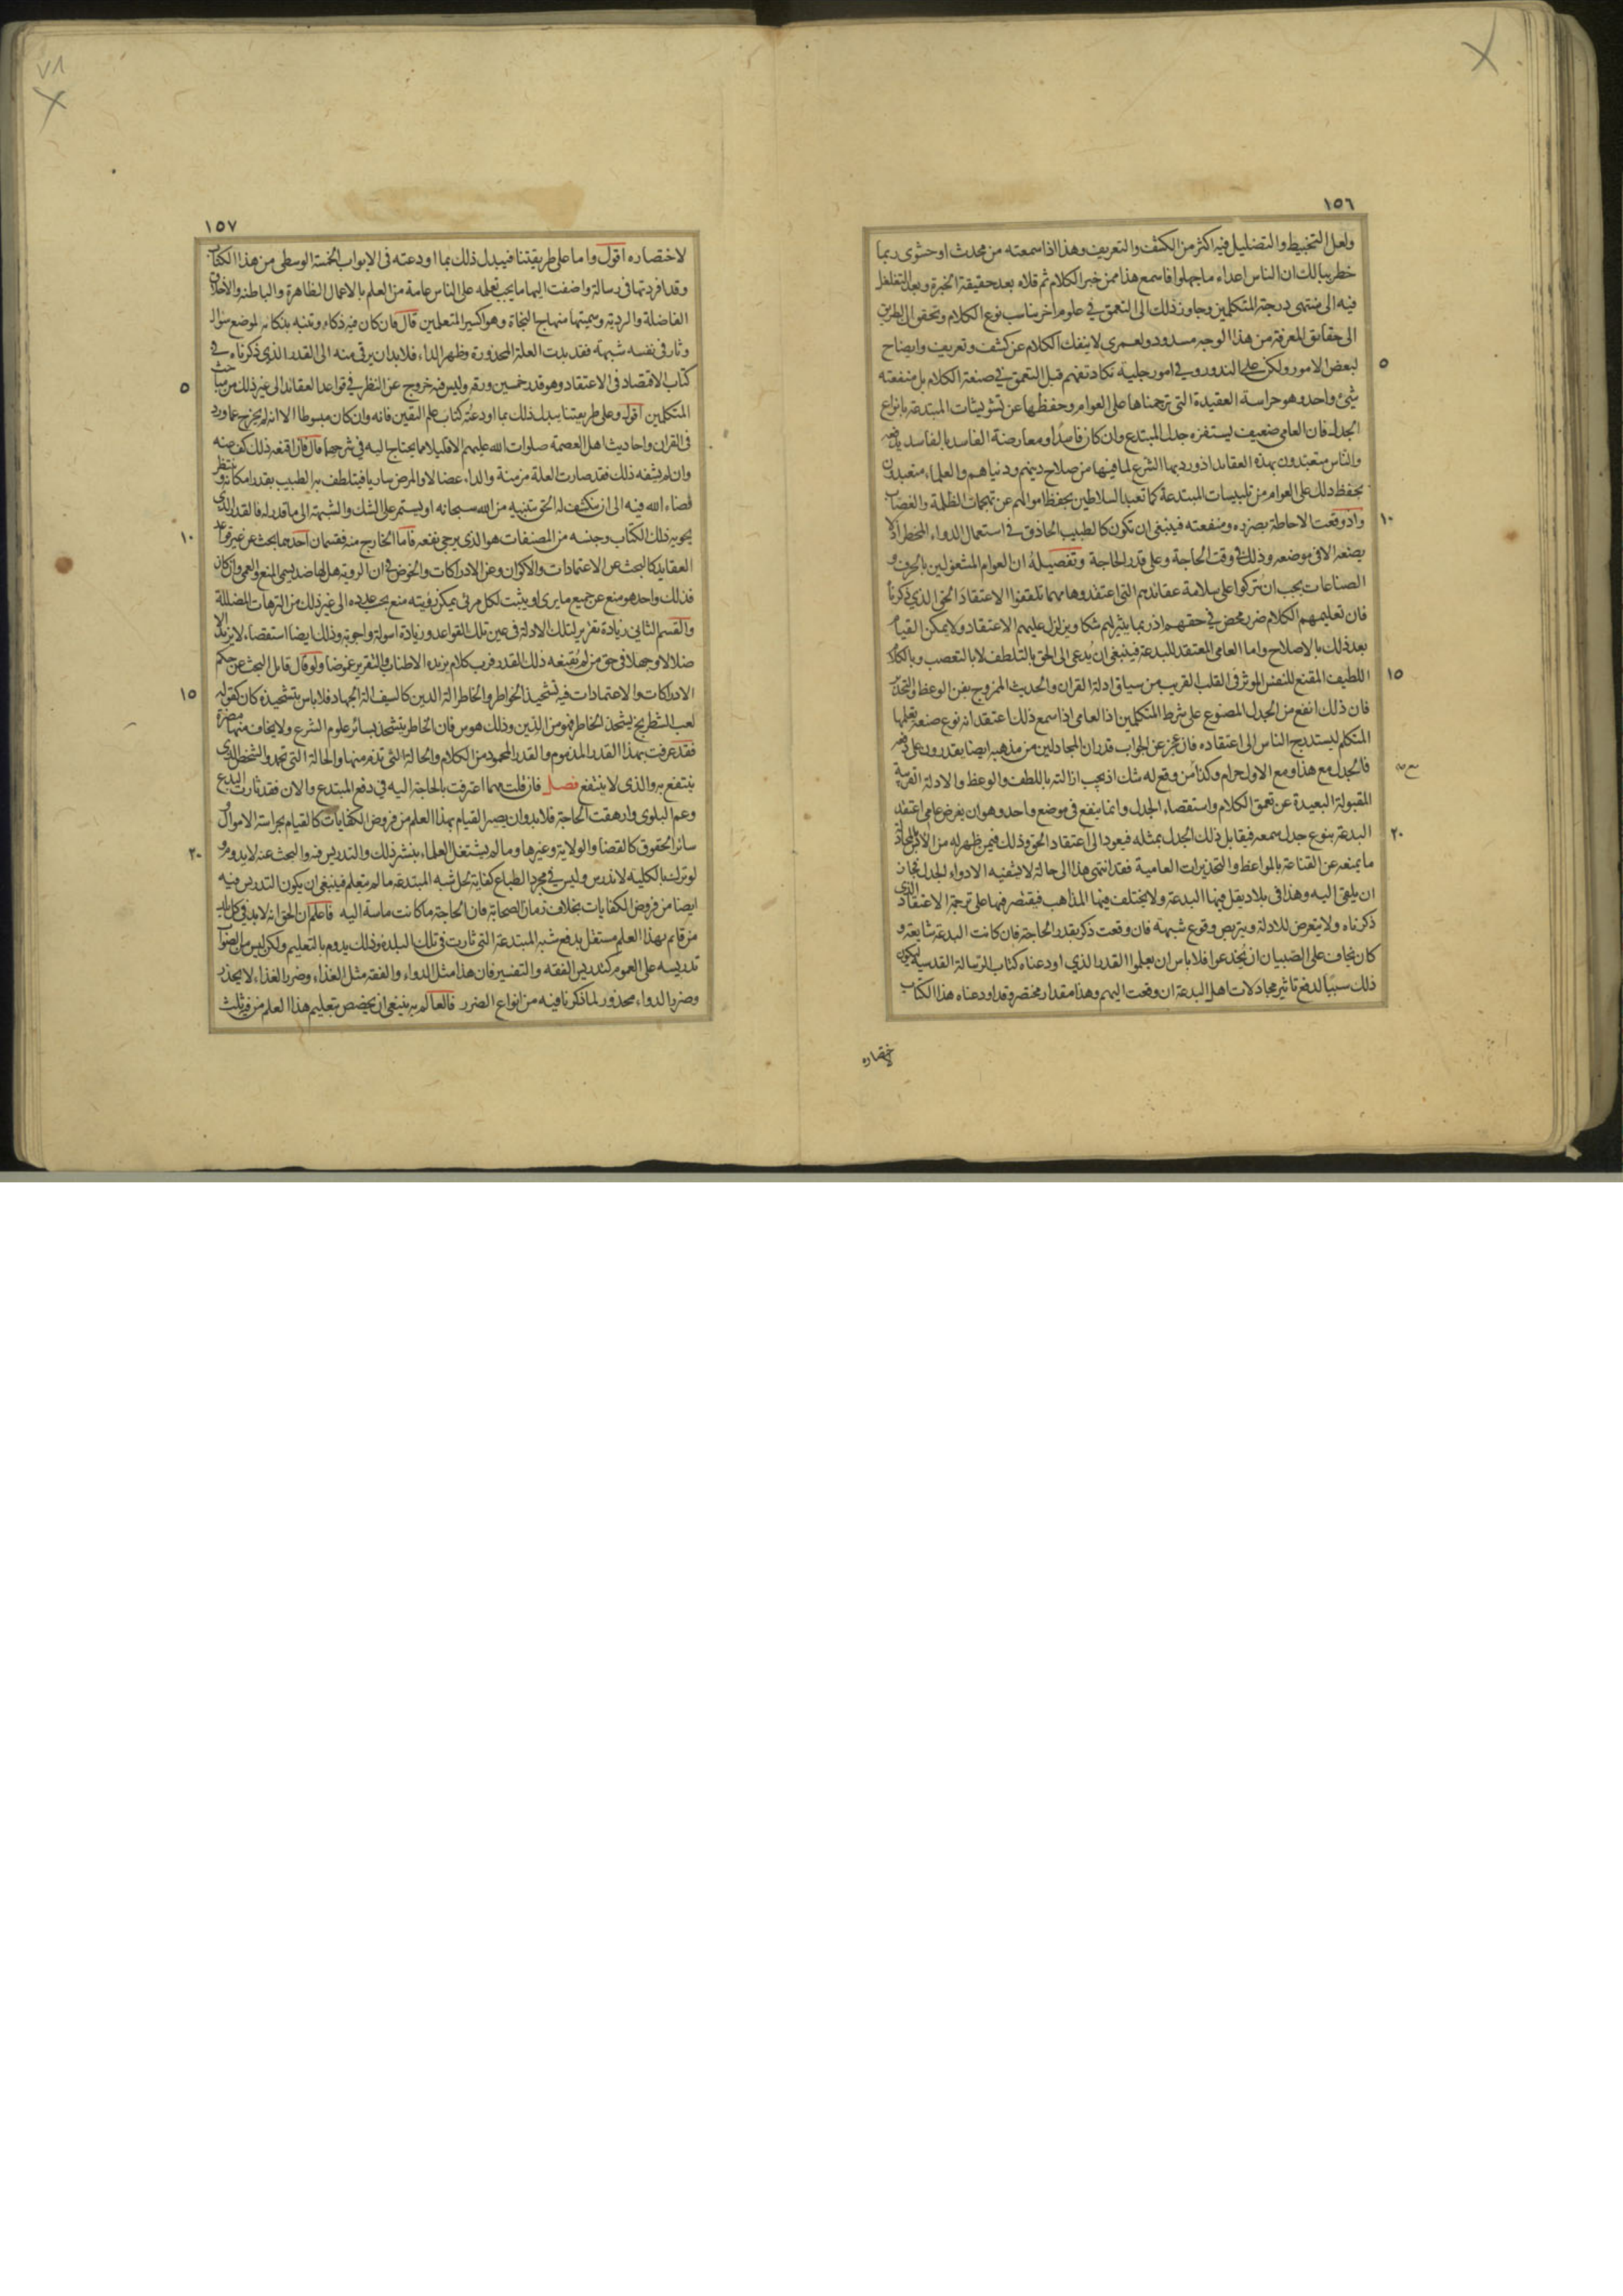 ١٥٦
ولعل التخبيط والتضليل فيه اكثر من الكشف والتعريف وهذا اذا سمعته من محدث او حشوى ربما
خطر ببالك ان الناس اعداء ما جهلوا فاسمع هذا ممن خبر الكلام ثم قلاه بعد حقيقة الخبرة وبعد التغلغل
فيه الى منتهى درجة المتكلمين وجاوز ذلك الى التعمق في علوم اخر يناسب نوع الكلام وتحقق ان الطريق
الى حقايق المعرفة من هذا الوجه مسدود ولعمرى لا ينفك الكلام عن كشف وتعريف وايضاح
٥
لبعض الامور ولكن على الندور وفي امور جلية تكاد تفهم قبل التعمق في صنعة الكلام بل منفعته
شئ واحد وهو حراسة العقيدة التى ترجمناها على العوام وحفظها عن تشويشات المبتدعة بانواع
الجدل فان العامى ضعيف يستفزه جدل المبتدع وان كان فاسدًا ومعارضة الفاسد بالفاسد يدفعه
والناس متعبدون بهذه العقايد اذ ورد بها الشرع لما فيها من صلاح دينهم ودنياهم والعلماء متعبدون
بحفظ ذلك على العوام من تلبيسات المبتدعة كما تعبد السلاطين بحفظ اموالهم عن تهجمات الظلمة والغصاب
١٠
واذ وقعت الاحاطة بضرره ومنفعته فينبغى ان تكون كالطبيب الحاذق في استعمال الدواء المخطر اذ لا
يضعه الا فى موضعه وذلك فى وقت الحاجة وعلى قدر الحاجة وتفصيله ان العوام المشتغولين بالحرف و
الصناعات يجب ان يتركوا على سلامة عقائدهم التى اعتقدوها مهما تلقفوا الاعتقاد الحق الذي ذكرناه
فان تعليمهم الكلام ضر محض في حقهم اذ ربما يثير لهم شكا ويزلزل عليهم الاعتقاد ولا يمكن القيام
بعد ذلك بالاصلاح واما العامى المعتقد للبدعة فينبغى ان يدعى الى الحق بالتلطف لا بالتعصب وبالكلام
١٥
اللطيف المقنع للنفس الموثر فى القلب القريب من سياق ادلة القران والحديث الممزوج بفن الوعظ والتحذير
فان ذلك انفع من الجدل المصنوع على شرط المتكلمين اذ العامى اذا سمع ذلك اعتقد انه نوع صنعة تعلمها
المتكلم ليستدرج الناس الى اعتقاده فان عجز عن الجواب قدر ان المجادلين من مذهبه ايضا يقدرون على دفعه
فالجدل مع هذا ومع الاول حرام وكذا من وقع له شك اذ يجب ازالته باللطف والوعظ والادلة القريبة
المقبولة البعيدة عن تعمق الكلام واستقصاء الجدل وانما ينفع فى موضع واحد وهو ان يفرض عامى اعتقد
٢٠
البدعة بنوع جدل سمعه فيقابل ذلك الجدل بمثله فيعود الى اعتقاد الحق وذلك فيمن ظهر له من الانس بالمجادلة
ما يمنعه عن القناعة بالمواعظ والتحذيرات العامية فقد انتهى هذا الى حالة لا يشفيه الا دواء الجدل فجاز
ان يلقى اليه وهذا فى بلاد يقل فيها البدعة ولا يختلف فيها المذاهب فيقتصر فيها على ترجمة الاعتقاد الذى
ذكرناه ولا يتعرض للادلة ويتربص وقوع شبهة فان وقعت ذكر بقدر الحاجة فان كانت البدعة شايعة و
كان يخاف على الصبيان ان يخدعوا فلا باس ان يعلموا القدر الذي اودعناه كتاب الرسالة القدسية ليكون
ذلك سببًا لدفع تاثير مجادلات اهل البدعة ان وقعت اليهم وهذا مقدار مختصر وقد اودعناه هذا الكتاب
لاختصاره
١٥٧
لاختصاره اقول واما على طريقتنا فيبدل ذلك بما اودعته فى الابواب الخمسة الوسطى من هذا الكتاب
وقد افردتها فى رسالة واضفت اليها ما يجب تعلمه على الناس عامة من العلم بالاعمال الظاهرة والباطنة والاخلاق
الفاضلة والردية وسميتها منهاج النجاة وهو اكسير المتعلمين قال فان كان فيه ذكاء وتنبه بذكائه لموضع سؤال
وثار فى نفسه شبهة فقد بدت العلة المحذورة وظهر الداء فلا بد ان يرقى منه الى القدر الذي ذكرناه في
٥
كتاب الاقتصاد فى الاعتقاد وهو قدر خمسين ورقة وليس فيه خروج عن النظر في قواعد العقائد الى غير ذلك من مباحث
المتكلمين اقول وعلى طريقتنا يبدل ذلك بما اودعته كتاب علم اليقين فانه وان كان مبسوطا الا انه لم يخرج عما ورد
فى القران واحاديث اهل العصمة صلوات الله عليهم الا قليلا مما يحتاج اليه فى شرحهما قال فان اقنعه ذلك كف عنه
وان لم يشفه ذلك فقد صارت العلة مزمنة والداء عضالا والمرض ساريا فيتلطف به الطبيب بقدر امكانه وينتظر
قضاء الله فيه الى ان ينكشف له الحق بتنبيه من الله سبحانه او يستمر على الشك والشبهة الى ما قدر له فالقدر الذى
١٠
يحويه ذلك الكتاب وجنسه من المصنفات هو الذى يرجى نفعه فاما الخارج منه فقسمان احدهما بحث عن غير قواعد
العقايد كالبحث عن الاعتمادات والاكوان وعن الادراكات والخوض في ان الروية هل لها ضد يسمى المنع والعمى وان كان
فذلك واحد هو منع عن جميع ما يرى او يثبت لكل مرئى يمكن رؤيته منع بحسب عدده الى غير ذلك من الترهات المضللة
والقسم الثانى زيادة تقرير لتلك الادلة فى عين تلك القواعد وزيادة اسولة واجوبة وذلك ايضا استقصاء لا يزيد الا
ضلالا وجهلا فى حق من لم يقنعه ذلك القدر فرب كلام يزيده الاطناب والتقرير غموضا ولو قال قايل البحث عن حكم
١٥
الادراكات والاعتمادات فيه تشحيذ الخواطر والخاطر الة الدين كالسيف الة الجهاد فلا باس بتشحيذه كان كقوله
لعب الشطرنج يشحذ الخاطر فهو من الدين وذلك هوس فان الخاطر يتشحذ بسائر علوم الشرع ولا يخاف منها مضرة
فقد عرفت بهذا القدر المذموم والقدر المحمود من الكلام والحالة التى تذم منها والحالة التى تحمد والشخص الذى
ينتفع به والذى لا ينتفع فصل فان قلت مهما اعترفت بالحاجة اليه في دفع المبتدع والان فقد ثارت البدع
وعم البلوى وارهقت الحاجة فلا بد وان يصير القيام بهذا العلم من فروض الكفايات كالقيام بحراسة الاموال و
٢٠
سائر الحقوق كالقضا والولاية وغيرها وما لم يشتغل العلماء بنشر ذلك والتدريس فيه والبحث عنه لا يدوم ولو
لو ترك بالكلية لاندرس وليس في مجرد الطباع كفاية لحل شبه المبتدعة ما لم يتعلم فينبغى ان يكون التدريس فيه
ايضا من فروض الكفايات بخلاف زمان الصحابة فان الحاجة ما كانت ماسة اليه فاعلم ان الحق انه لا بد في كل بلد
من قائم بهذا العلم مستقل يدفع شبه المبتدعة التى ثارت فى تلك البلدة وذلك يدوم بالتعليم ولكن ليس من الصواب
تدريسه على العموم كتدريس الفقه والتفسير فان هذا مثل الدواء والفقه مثل الغذاء وضرر الغذاء لا يحذر
وضرر الدواء محذور لما ذكرنا فيه من انواع الضرر فالعالم به ينبغى ان يخصص بتعليم هذا العلم من فيه ثلث